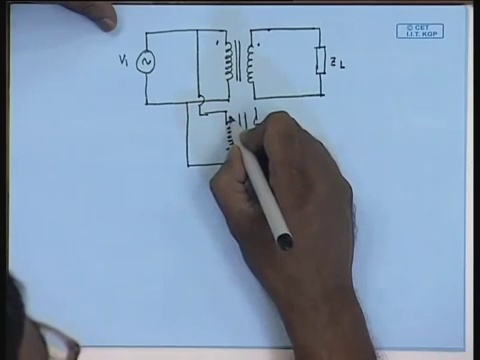 © CET
I.I.T. KGP
V1
Z L